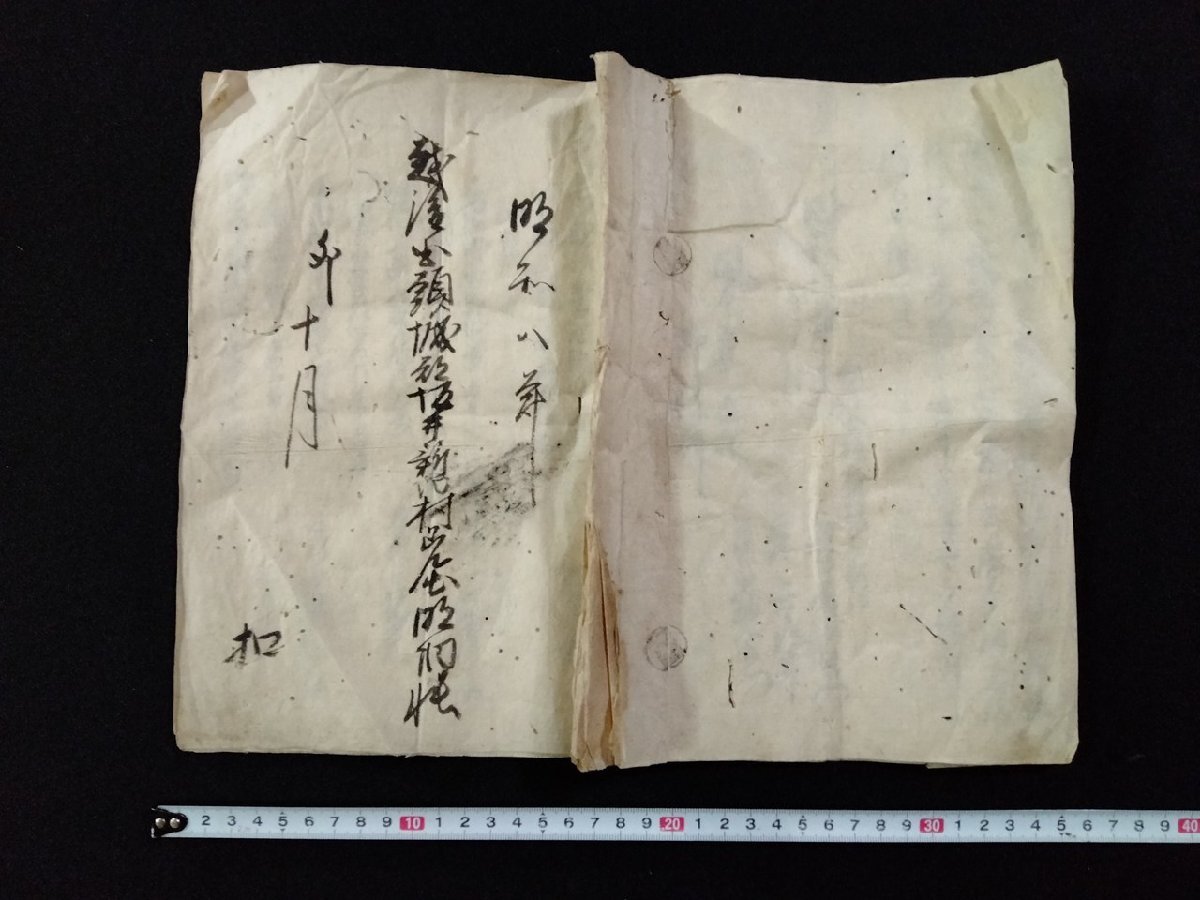 明和八年
越後国頸城郡坂井新田村明細帳
卯十月
扣
2 3 4 5 6 7 8 9 10 1 2 3 4 5 6 7 8 9 20 1 2 3 4 5 6 7 8 9 30 1 2 3 4 5 6 7 8 9 40